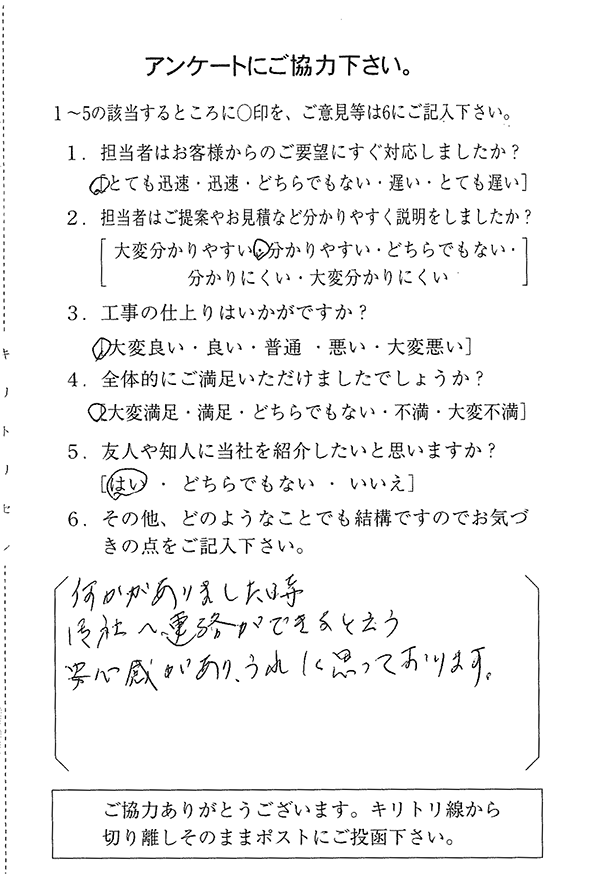 アンケートにご協力下さい。
1～5の該当するところに○印を、ご意見等は6にご記入下さい。
1．担当者はお客様からのご要望にすぐ対応しましたか？
[とても迅速・迅速・どちらでもない・遅い・とても遅い]
2．担当者はご提案やお見積など分かりやすく説明をしましたか？
[大変分かりやすい・分かりやすい・どちらでもない・
分かりにくい・大変分かりにくい]
3．工事の仕上りはいかがですか？
[大変良い・良い・普通 ・悪い・大変悪い]
4．全体的にご満足いただけましたでしょうか？
[大変満足・満足・どちらでもない・不満・大変不満]
5．友人や知人に当社を紹介したいと思いますか？
[はい ・ どちらでもない ・ いいえ]
6．その他、どのようなことでも結構ですのでお気づ
きの点をご記入下さい。
何かがありました時
御社へ連絡ができると云う
安心感があり、うれしく思っております。
ご協力ありがとうございます。キリトリ線から
切り離しそのままポストにご投函下さい。
キリトリセン